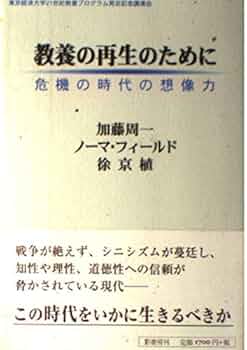 東京経済大学21世紀教養プログラム発足記念講演会
教養の再生のために
危機の時代の想像力
加藤周一
ノーマ・フィールド
徐京植
戦争が絶えず、シニシズムが蔓延し、
知性や理性、道徳性への信頼が
脅かされている現代——
この時代をいかに生きるべきか
影書房刊
定価 1700円+税